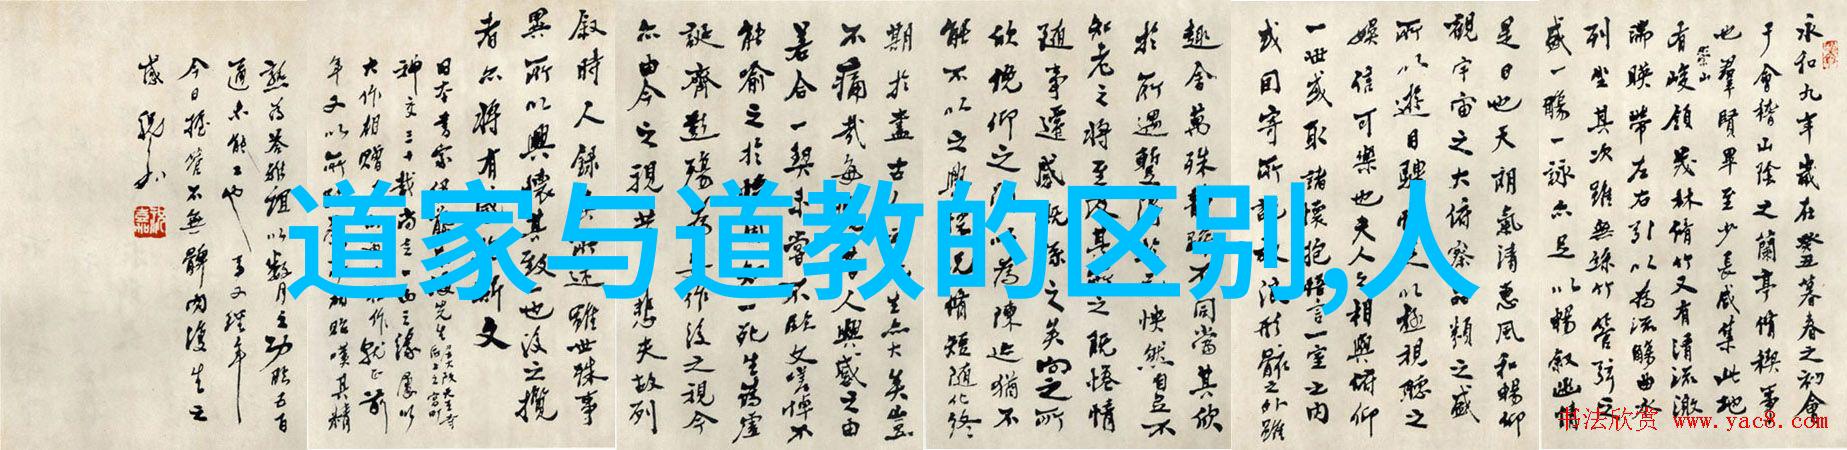 道家与道教的区别,人
永和九年歲在癸丑暮春之初會
于會稽山陰之蘭亭脩禊事
也羣賢畢至少長咸集此地
崇山
有峻領茂林脩竹又有清流激
湍暎帶左右引以為流觴曲水
列坐其次雖無絲竹管弦之
盛一觴一詠亦足以暢叙幽情
是日也天朗氣清惠風和暢仰
觀宇宙之大俯察品類之盛
所以遊目騁以極視聽之
娛信可樂也夫人之相與俯仰
一世或取諸懷抱悟言一室之內
或因寄所託放浪形骸之外雖
趣舍萬殊靜躁不同當其欣
於所遇蹔得於快然自足不
知老之將至及其所之既惓情
隨事遷感慨係之矣向之所
欣俛仰之以為陳迹猶不
能不以之興懷況脩短隨化終
期於盡古人云死生亦大矣豈
不痛哉每人興感之由
若合一契未嘗不臨文嗟悼不
能喻之於懷固知一死生為虛
誕齊彭殤為妄作後之視今
亦由今之視昔悲夫故列
叙時人錄其所述雖世殊事
異所以興懷其致一也後之攬
者亦將有感於斯文
日本書家先生
神交三十載尚之緣屢以
大作相贈作就正前
年又以所貽嘆其精
熟為蓉雖詛以數月之功能五百
適未能也
今日握管不無髀肉復生之
感
书法欣赏 www.yac8.com